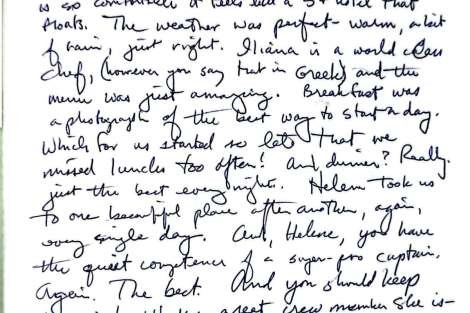 is so comfortable it feels like a 5* hotel that
floats. The weather was perfect - warm, a bit
of rain, just right. Iliana is a world class
chef, (however you say that in Greek) and the
menu was just amazing. Breakfast was
a photograph of the best way to start a day.
Which for us started so late that we
missed lunches too often! And, dinner? Really.
just the best every night. Helene took us
to one beautiful place after another, again,
every single day. And, Helene, you have
the quiet competence of a super-pro captain.
Again. The best. And you should keep
great crew member she is -